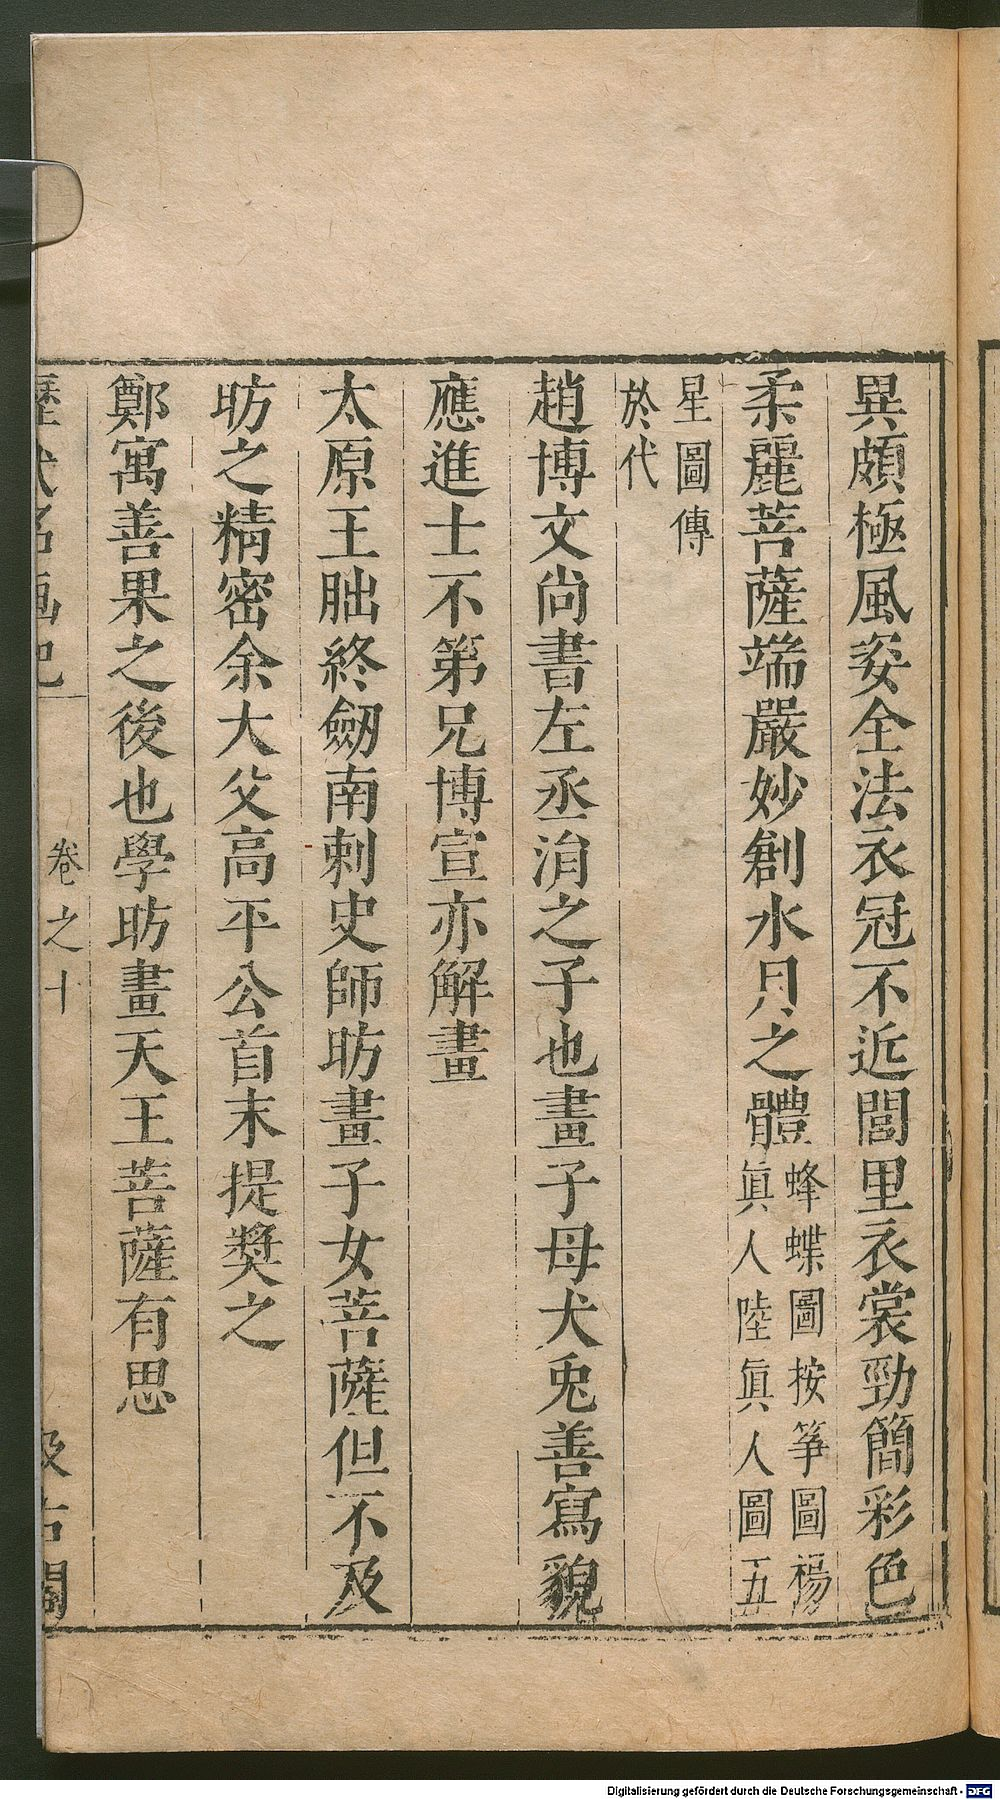 異頗極風姿全法衣冠不近閭里衣裳勁簡彩色
柔麗菩薩端嚴妙創水月之體蜂蝶圖按箏圖楊
眞人陸眞人圖五
星圖傳
於代
趙博文尚書左丞涓之子也畫子母犬兎善寫貌
應進士不第兄博宣亦解畫
太原王朏終劒南刺史師昉畫子女菩薩但不及
昉之精密余大父高平公首末提奬之
鄭寓善果之後也學昉畫天王菩薩有思
歷代名畫記 卷之十 汲古閣
Digitalisierung gefördert durch die Deutsche Forschungsgemeinschaft - DFG